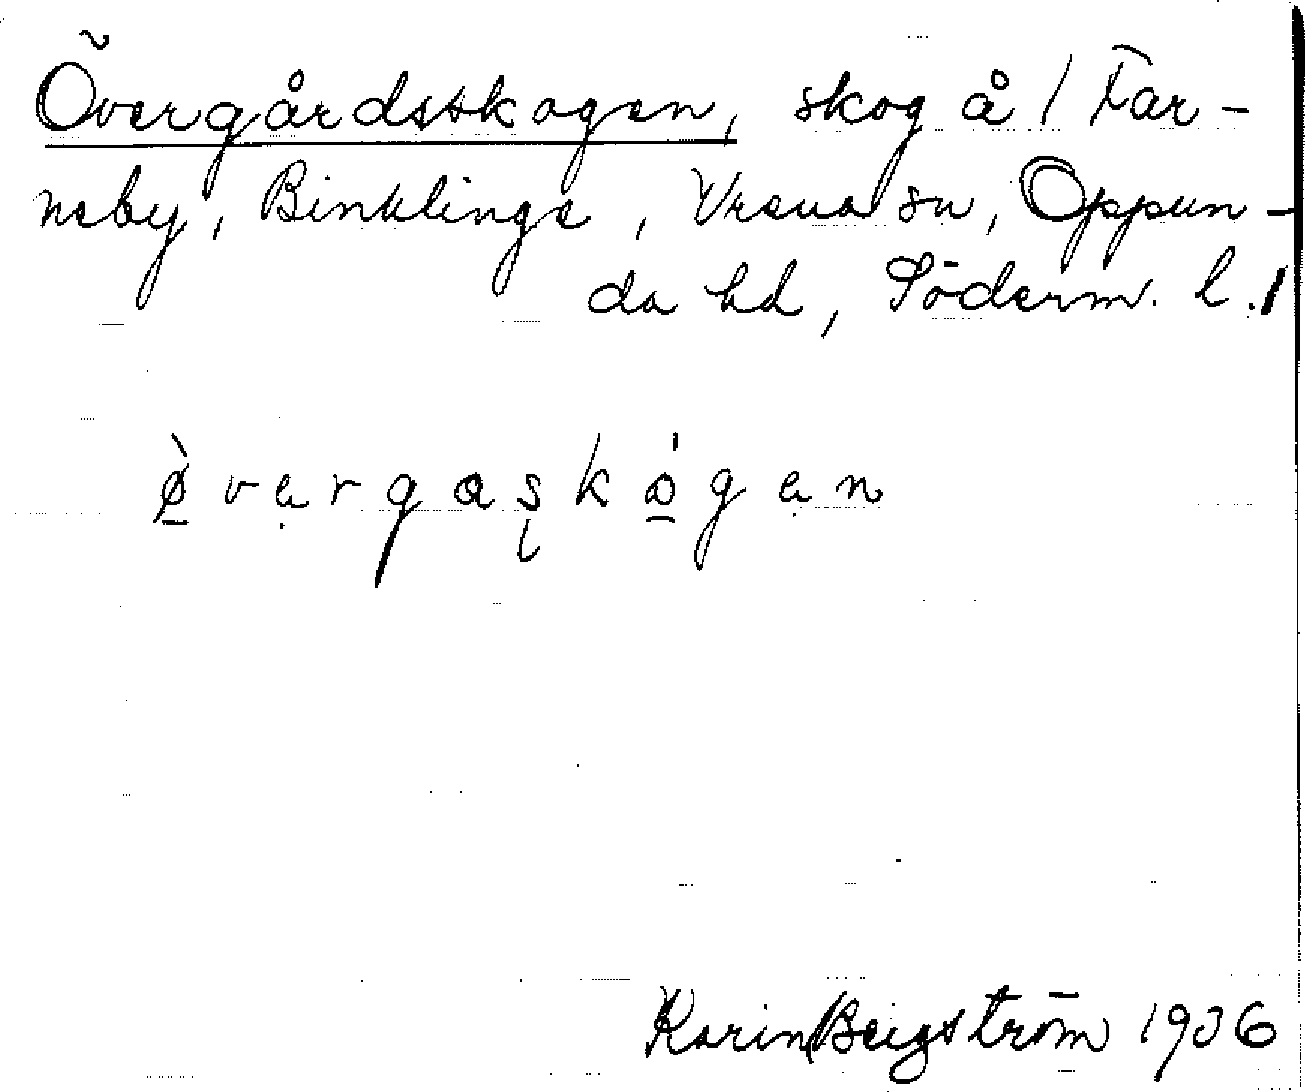 Övergårdsskogen, skog å / Far-
neby, Binklinge, Vrena sn, Oppun-
da hd, Söderm. l.
ø̱̀vergaşkó̱gen
Karin Bergström 1936